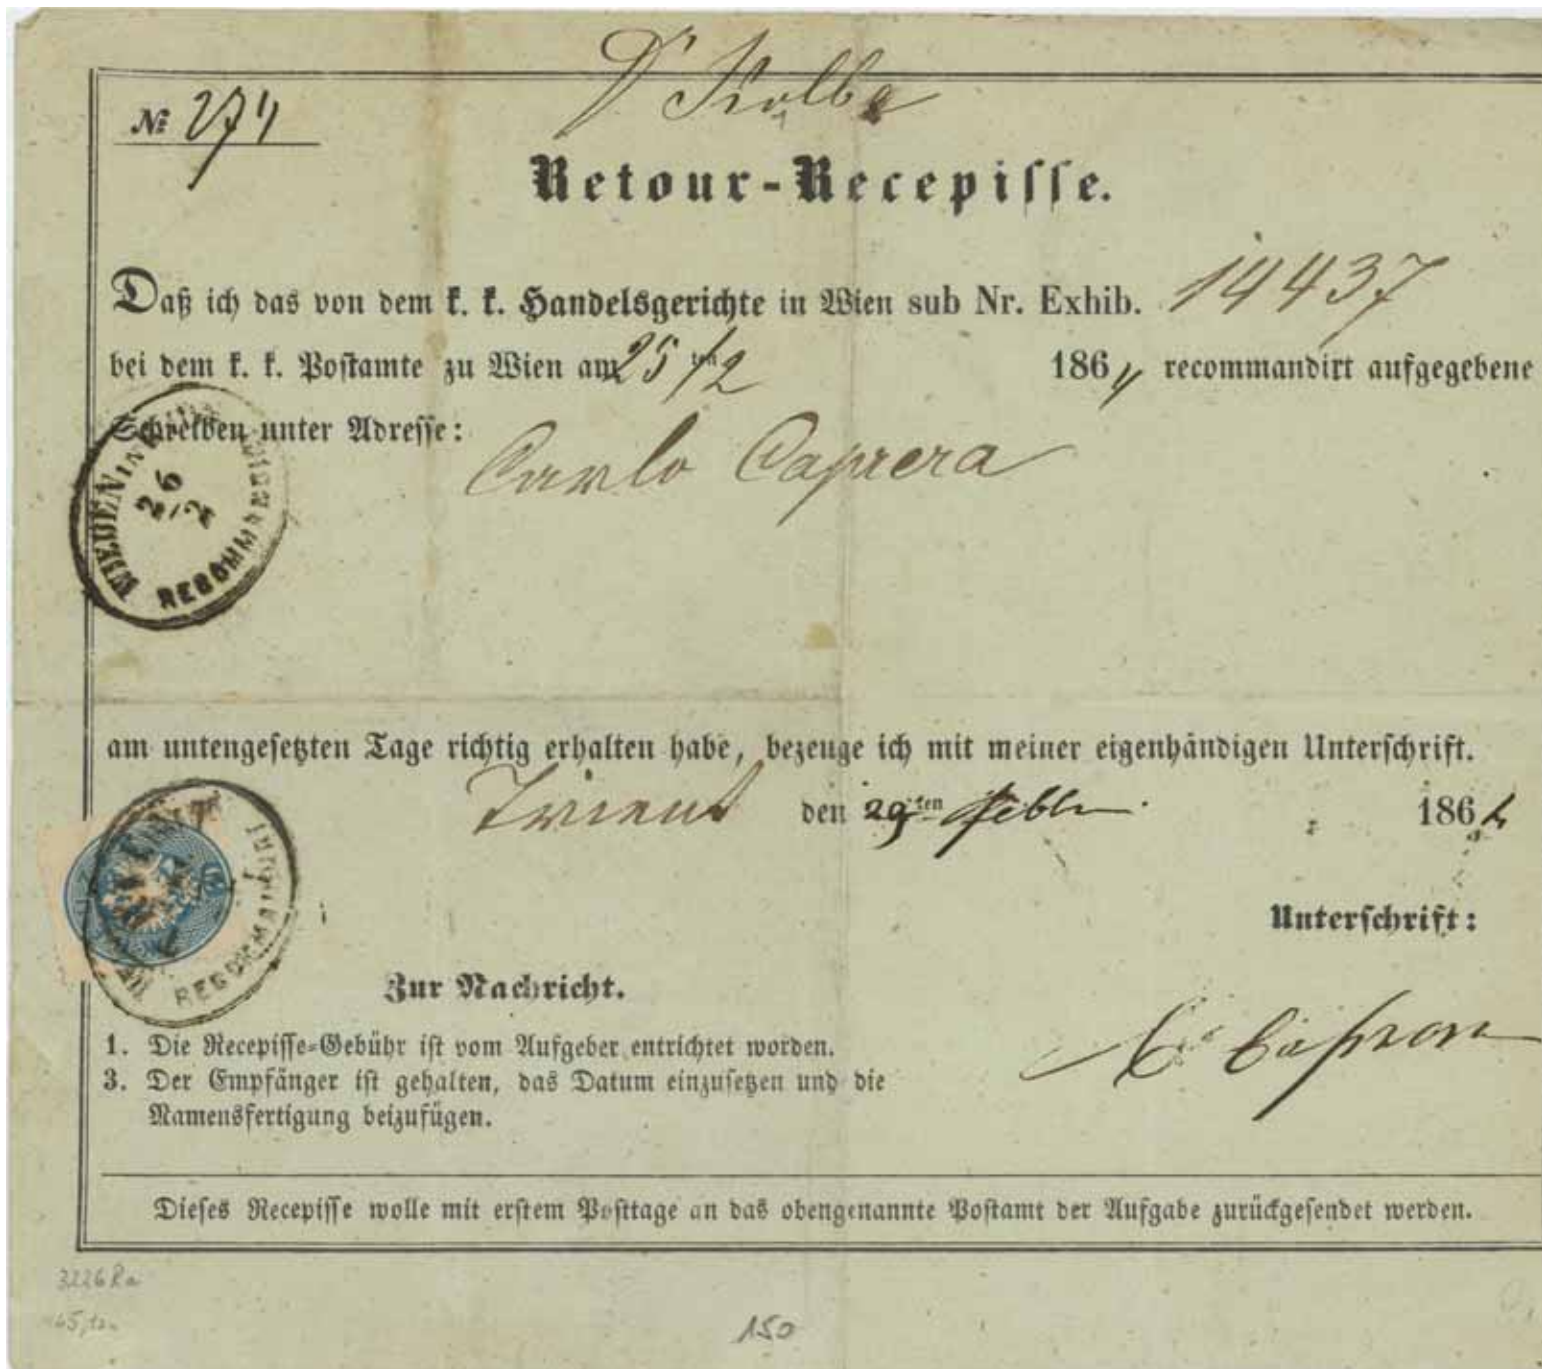 Dr Kolbe
№ 274
Retour-Recepisse.
Daß ich das von dem k. k. Handelsgerichte in Wien sub Nr. Exhib. 14437
bei dem k. k. Postamte zu Wien am 25/2 1864 recommandirt aufgegebene
Schreiben unter Adresse:
Carlo Caprera
WIEDEN IN WIEN
26
2
RECOMMANDIRT
am untengesetzten Tage richtig erhalten habe, bezeuge ich mit meiner eigenhändigen Unterschrift.
Trient den 29ten Febbr. 1864
Unterschrift:
RECOMMANDIRT
Zur Nachricht.
1. Die Recepisse-Gebühr ist vom Aufgeber entrichtet worden.
3. Der Empfänger ist gehalten, das Datum einzusetzen und die
Namensfertigung beizufügen.
Dieses Recepisse wolle mit erstem Posttage an das obengenannte Postamt der Aufgabe zurückgesendet werden.
3226 Ra
150